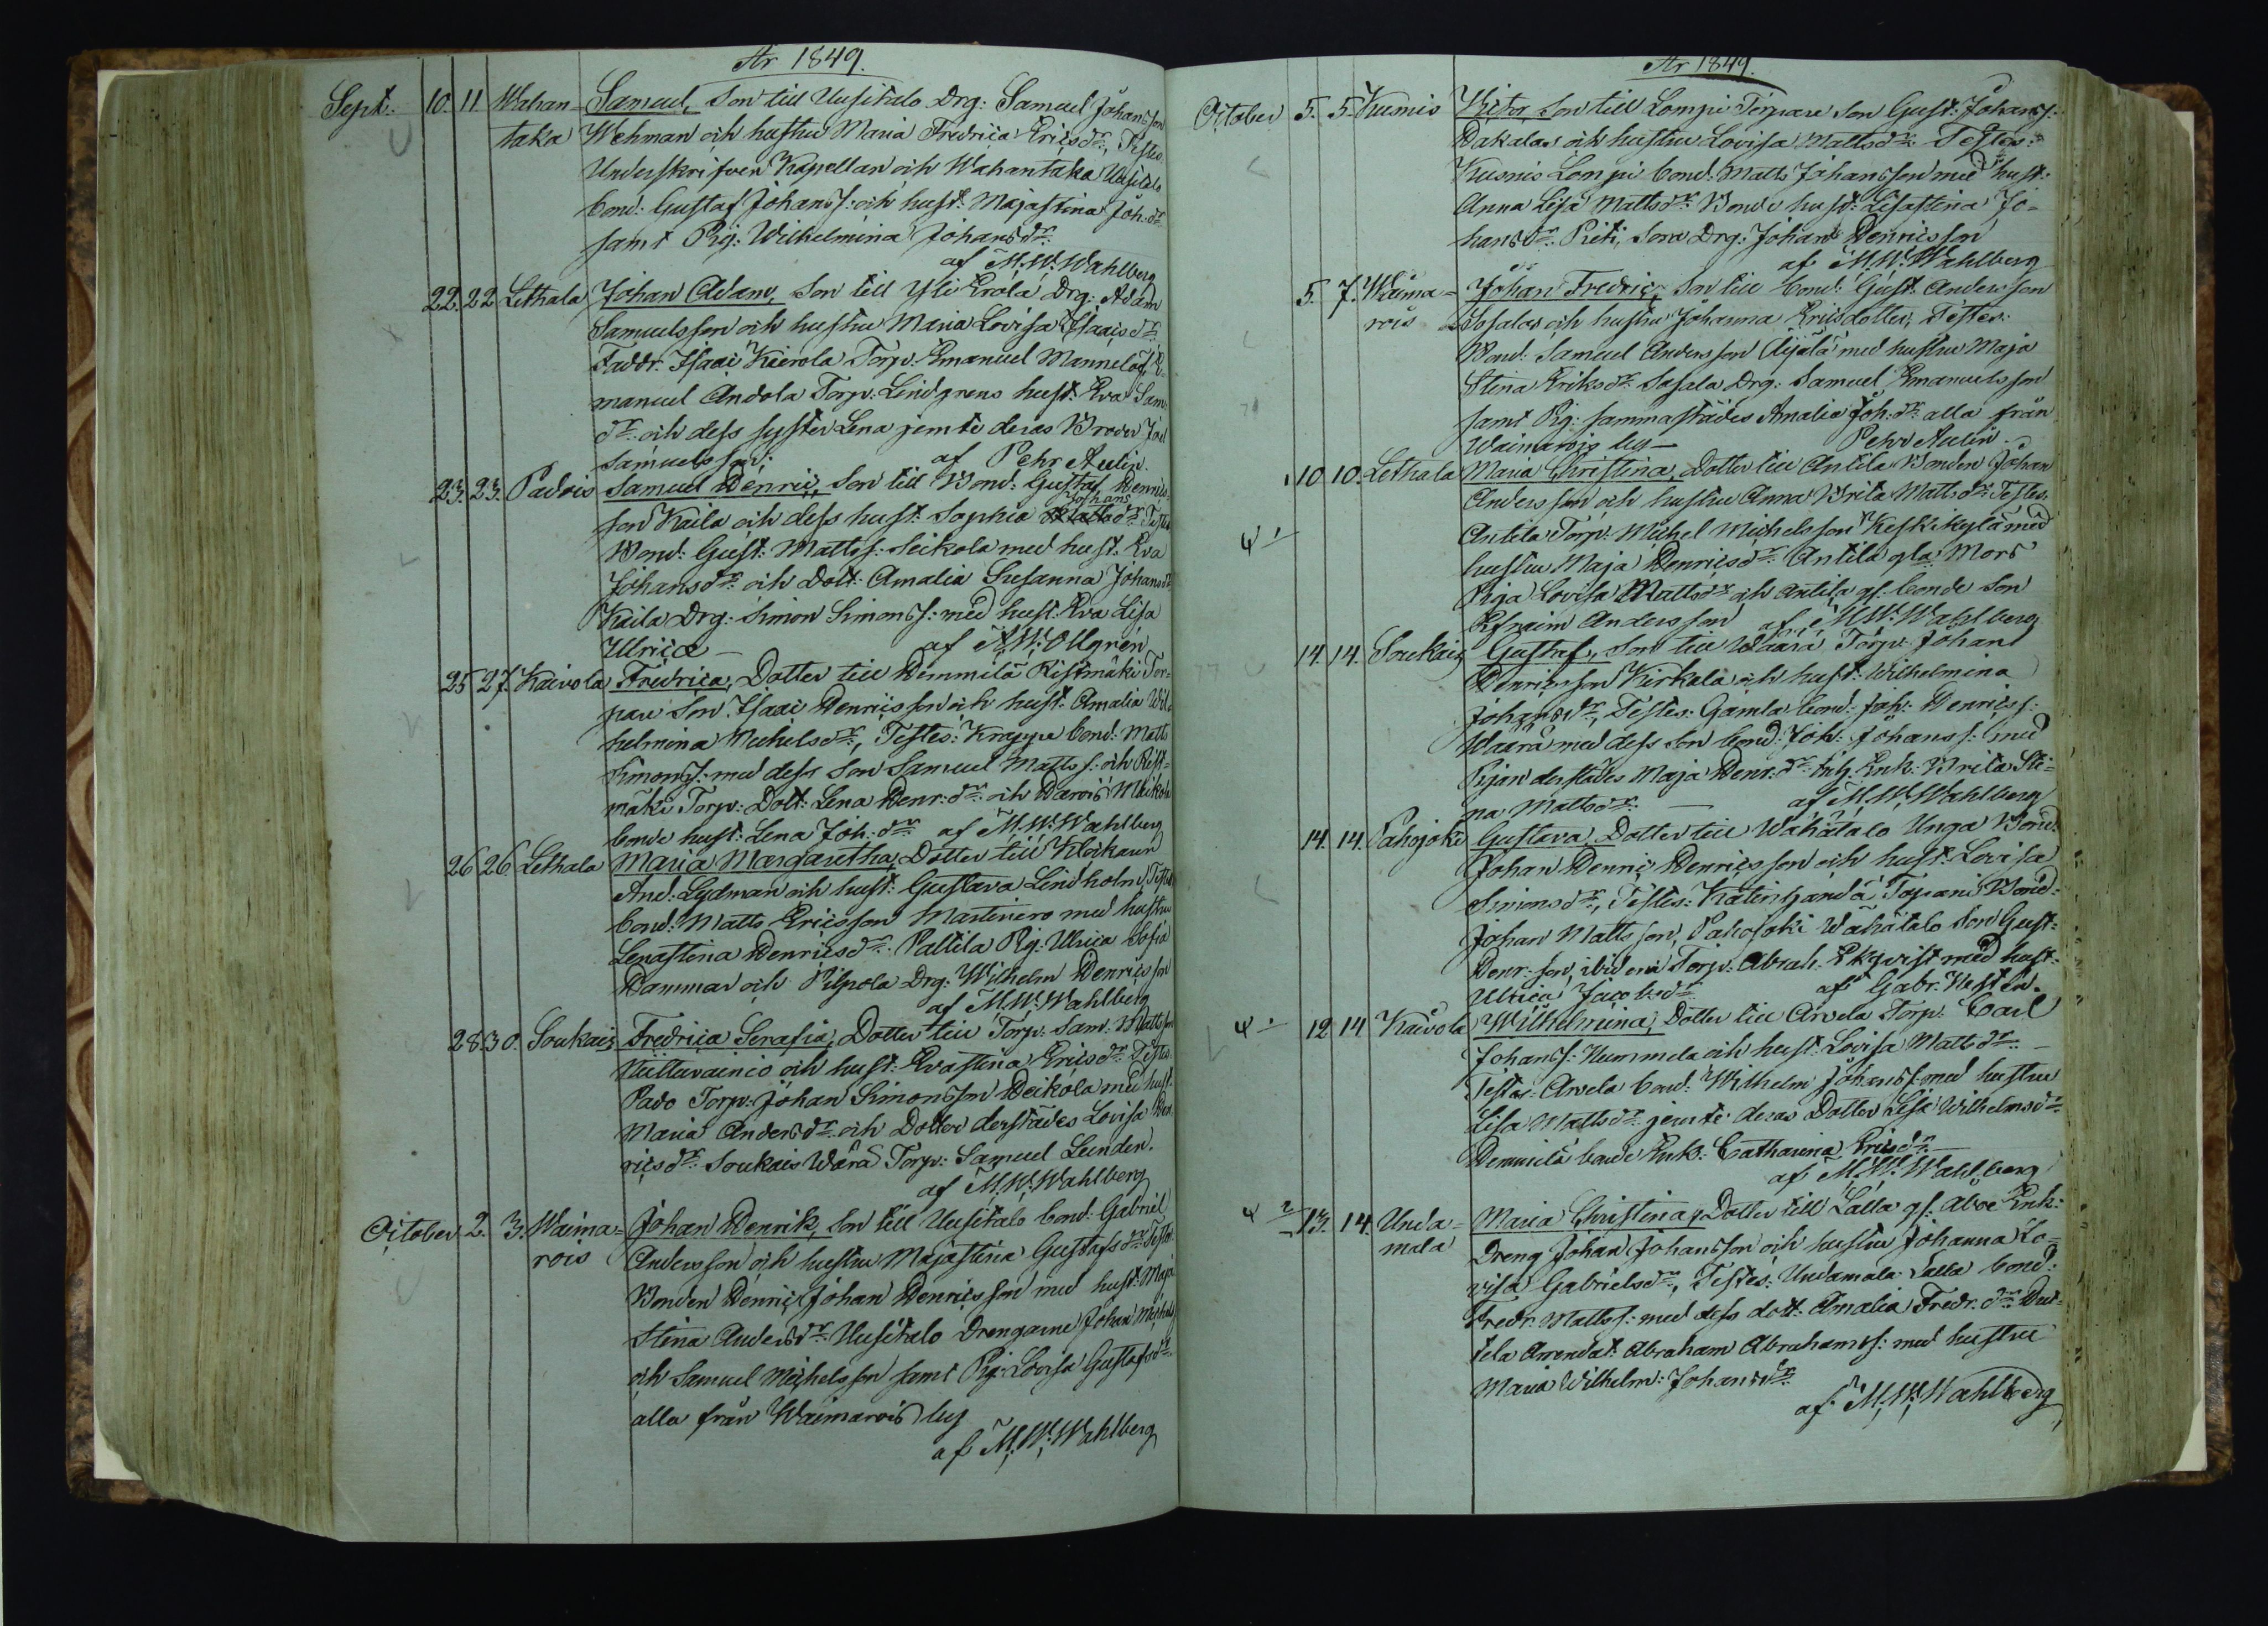 År 1849.
Sept. 10. 11. Wahan- Samuel, Son till Uusitalo Drg: Samuel Johansson
taka Wehman och hustru Maria Fredrica Ericsdr, Testes
Underskrifven Kapellan och Wahantaka Uusitalo
bond: Gustaf Johanss: och hust: Majastina Joh: dr
samt Pig: Wilhelmina Johansdr:
af M. W. Wahlberg
22. 22 Lethala Johan Adam, Son till Yli Erola Drg: Adam
Samuelsson och hustru Maria Lovisa Isaacsdr
Faddr. Isaac Kierola Torp: Emanuel Mannelöf, E-
manuel Andola Torp: Lindgrens hust: Eva Sam:
dr: och dess syster Lena jemte deras Broder
Samuelsson; af Pehr Aulin.
23. 23. Padois Samuel Henric, Son till Bond: Gustaf Henrics-
son Kaila och dess hust: Sophia Johans dr: Testes
Bond: Gust: Mattss: Seikola med hust. Eva
Johansdr: och Dott: Amalia Susanna Johansdr
Kaila Drg: Simon Simonss: med hust: Eva Lisa
Ulrica — af A. W. Ollgren
25 27. Kaivola Fredrica, Dotter till Hemmilä Ristmäki Tor-
pare Son Isaac Henricsson och hust: Amalia Wil-
helmina Michelsdr, Testes: Krappe bond: Matts
Simonss: med dess Son Samuel Mattss: och Rist-
mäki Torp: Dott: Lena Henr: dr: och Darois Maikola
bonde hust: Lena Joh: dr: af M. W. Wahlberg
26 26 Lethala Maria Margaretha, Dotter till Klockaren
And: Lydman och hust: Gustava Lindholm, Testes
bond: Matts Ericsson Martinero med hustru
Lenastina Henricsdr: Pattila Pig: Ulrica Sofia
Dammar och Pilpola Drg: Wilhelm Henricsson
af M. W. Wahlberg
28. 30. Soukais Fredrica Serafia, Dotter till Torp: Sam: Mattsson
Uuttuvainio och hust: Evastina Ericsdr: Testes
Pado Torp: Johan Simonsson Heikola med hust:
Maria Andersdr: och Dotter derstädes Lovisa Hen-
ricsdr: Soukais Wära Torp: Samuel Lunden.
af M. W. Wahlberg
October 2. 3. Waima- Johan Henrik, Son till Uusitalo bond: Gabriel
rois Andersson och hustru Majastina Gustafsdr: Testes
Bonden Henric Johan Henricsson med hust: Maja
Stina Andersdr: Uusitalo Drengarne Johan Michels
och Samuel Michelsson samt Pig: Lovisa Gustafsdr:
alla från Waimarois by
af M. W. Wahlberg
År 1849.
October 5. 5. Kusnis Victor Son till Lompi Torpare Son Gust: Johanss:
Dakalax och hustru Lovisa Mattsdr: Testes:
Kusnis Lompi bond: Matts Johansson med hust:
Anna Lisa Mattsdr: Bonde hust: Lisastina Jo-
hansdr: Pieti, Sora Drg: Johan Henricsson
af M. W. Wahlberg
5. 7. Waima- Johan Fredric, Son till bond: Gust: Andersson
rois Sasalas och hustru Johanna Ericsdotter, Testes:
Bond: Samuel Andersson Äijälä med hustru Maja
Stina Eriksdr: Sasala Drg: Samuel Emanuelsson
samt Pig: sammastädes Amalia Joh: dr: alla från
Waimarois by— Pehr Aulin.
10 10. Lethala Maria Christina, Dotter till Antila Bonden Johan
Andersson och hustru Anna Brita Mattsdr: Testes:
Antila Torp: Michel Michelsson Keskikylä med
hustru Maja Henricsdr: Antila gla Mors
Piga Lovisa Mattsdr: och Antila gl. bonde Son
Efraim Andersson af M. W. Wahlberg
14. 14. Soukais Gustaf, Son till Wäärä Torp: Johan
Henricsson Kirkala och hust: Wilhelmina
Johansdr, Testes: Gamla bond: Joh: Henricss:
Wäärä med dess Son bond: Joh: Johanss: med
Pigan derstädes Maja Henr: dr: Enk: Brita Sti-
na Mattsdr: — af M. W. Wahlberg
14. 14. Pahojoki Gustava, Dotter till Wähätalo Unga Bond:
Johan Henric Henricsson och hust: Lovisa
Simonsdr, Testes: Tapani Bond:
Johan Mattsson, Pahojoki Wähätalo Son Gust:
Henr: son, ibidem Torp: Abrah: Ekqvist med hust:
Ulrica Jacobsdr: af Gabr. Westén.
12. 14 Kaivola Wilhelmina, Dotter till Arvela Torp: Carl
Johanss: Hummela och hust: Lovisa Mattsdr: —
Testes: Arvela bond: Wilhelm Johanss: med hustru
Lisa Mattsdr: jemte deras Dotter Lisa Wilhelmsdr:
Hemmilä bonde Enk: Catharina Ericsdr: —
af M. W. Wahlberg
13. 14. Unda- Maria Christina, Dotter till Lalla gl. Enk:
mala Dreng Johan Johansson och hustru Johanna Lo-
visa Gabrielsdr, Testes: Undamala Lalla bond:
Fredr: Mattss: med dess dott: Amalia Fredr: dr:
tela Arrendat: Abraham Abrahamss: med hustru
Maria Wilhelm: Johansdr:
af M. W. Wahlberg